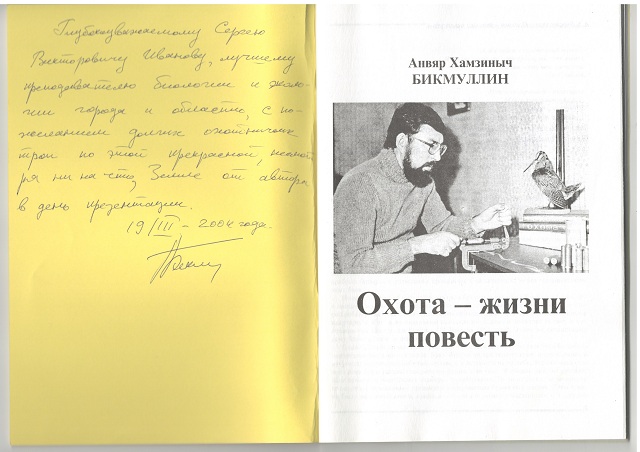 Глубокоуважаемому Сергею
Викторовичу Иванову, лучшему
преподавателю биологии и эколо-
гии города и области, с по-
желанием долгих охотничьих
троп по этой прекрасной, несмот-
ря ни на что, Земле от автора
в день презентации.
19/III – 2004 года.
Анвяр Хамзиныч
БИКМУЛЛИН
ОХОТА
Охота – жизни
повесть